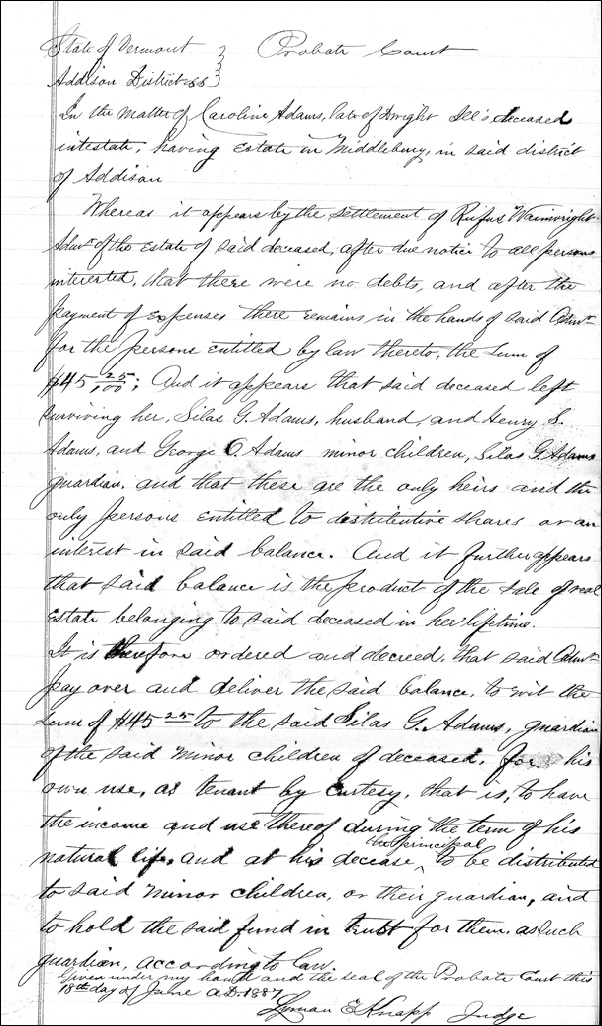 State of Vermont } Probate Court
Addison District ss }
In the matter of Caroline Adams, late of Dwight Ill's, deceased
intestate, having Estate in Middlebury, in said district
of Addison
Whereas it appears by the settlement of Rufus Wainwright
Admr of the Estate of said deceased, after due notice to all persons
interested, that there were no debts, and after the
payment of expenses there remains in the hands of said Admr
for the persons entitled by law thereto, the sum of
$45 25/100; And it appears that said deceased left
surviving her, Silas G. Adams, husband, and Henry S.
Adams, and George O. Adams minor children, Silas G. Adams
guardian, and that these are the only heirs and the
only persons entitled to distributive shares or an
interest in said balance. And it further appears
that said balance is the product of the sale of real
Estate belonging to said deceased in her lifetime.
It is therefore ordered and decreed, that said Admr
pay over and deliver the said balance, to wit the
sum of $45 25 to the said Silas G. Adams, guardian
of the said minor children of deceased, for his
own use, as tenant by curtesy, that is, to have
the income and use thereof during the term of his
natural life, and at his decease, the principal to be distributed
to said minor children, or their guardian, and
to hold the said fund in trust for them, as such
guardian, according to law.
Given under my hand and the seal of the Probate Court this
18th day of June A.D. 1887
Lyman E Knapp Judge